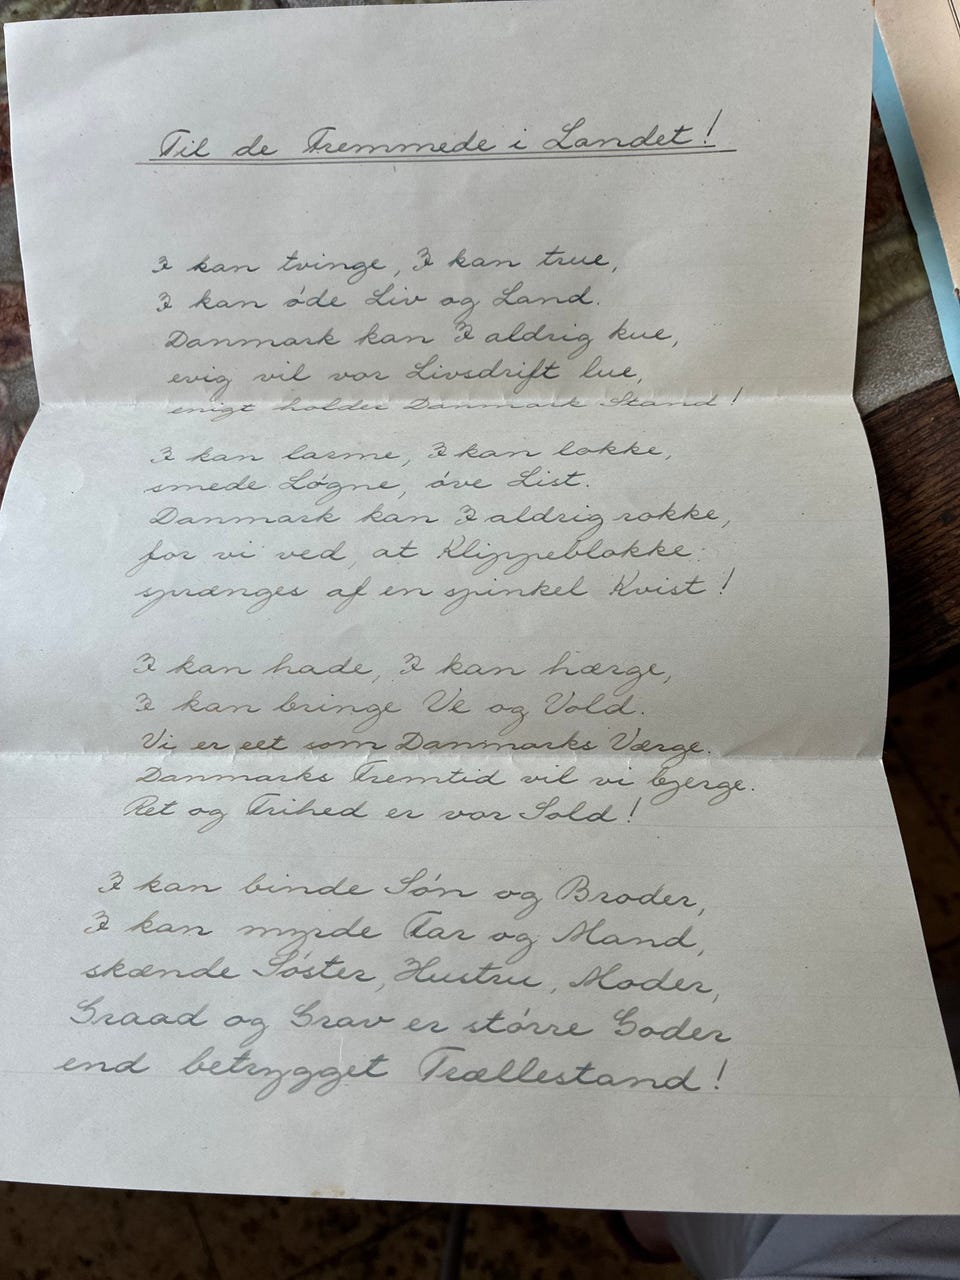 Til de Fremmede i Landet!
I kan tvinge, I kan true,
I kan øde Liv og Land.
Danmark kan I aldrig kue,
evig vil vor Livsdrift lue,
enigt holder Danmark Stand!
I kan larme, I kan lokke,
smede Løgne, øve List.
Danmark kan I aldrig rokke,
for vi ved, at Klippeblokke
sprænges af en spinkel Kvist!
I kan hade, I kan hærge,
I kan bringe Ve og Vold.
Vi er eet som Danmarks Værge.
Danmarks Fremtid vil vi bjerge.
Ret og Frihed er vor Sold!
I kan binde Søn og Broder,
I kan myrde Far og Mand,
skænde Søster, Hustru, Moder,
Graad og Grav er større Goder
end betrygget Trællestand!